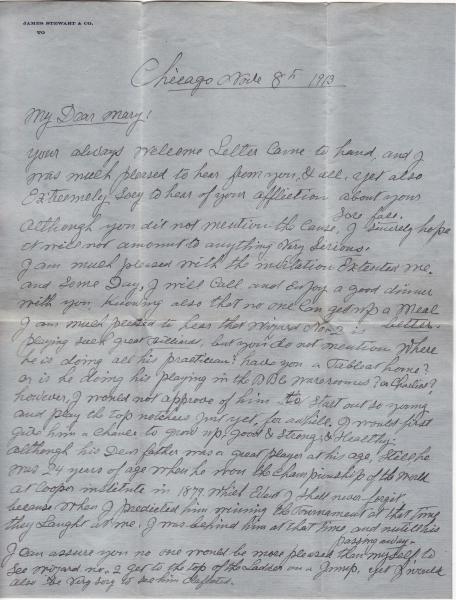 JAMES STEWART & CO.
TO
Chicago Nov 8th 1913
My Dear Mary!
Your always welcome Letter Came to hand, and I
was much pleased to hear from you, & all. yet also
Extremely Sory to hear of your affliction about your
Sore face.
Although you dit not mention the Cause, I sincerely hope
it will not amount to anything Very Serious.
I am much pleased with the invitation Extented me.
and Some Day, I will Call and Enjoy a good dinner
with you, Knowing also that no one Can get up a Meal
better.
I am much pleased to hear that Wizard No. 2 is
playing such great Billiards, but you do not mention Where
he is doing all his practicen? have you a Table at home?
or is he doing his playing in the BBC warerooms? or Charlies?
however, I would not approve of him to Start out so young
and play the top notchers Just yet, for awhile. I would first
give him a chance to grow up, Good & Strong & Healthy.
Although his Dear father was a great player at his age, still he
was 24 years of age when he won the Championship of the World
at Cooper institute in 1879. Which Event I shall never forget,
because when I predicted him winning the Tournament at that time
they Laught at me. I was behind him at that time, and until his
passing away.
I Can assure you no one would be more pleased than myself to
See Wizard no. 2 get to the top of the Ladder on a Jump, yet I would
also be Very Sory to see him defeated.